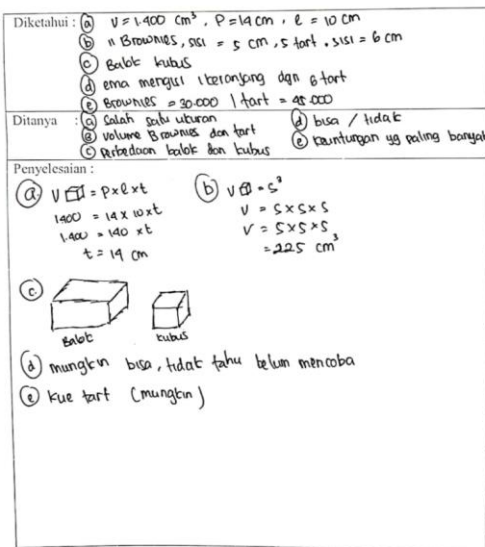 Diketahui : (a) V = 1.400 cm³ , P = 14 cm , l = 10 cm
(b) 11 Brownies, sisi = 5 cm , 5 tart . sisi = 6 cm
(c) Balok kubus
(d) ema mengisi 1 keranjang dgn 6 tart
(e) Brownies = 30.000 | tart = 45.000
Ditanya : (a) Salah satu ukuran
(b) volume Brownies dan tart
(c) perbedaan balok dan kubus
(d) bisa / tidak
(e) keuntungan yg paling banyak
Penyelesaian :
(a) V = p x l x t
1400 = 14 x 10 x t
1.400 = 140 x t
t = 14 cm
(b) V = s³
V = s x s x s
V = 5 x 5 x 5
= 225 cm³
(c)
Balok
kubus
(d) mungkin bisa, tidak tahu belum mencoba
(e) kue tart (mungkin)